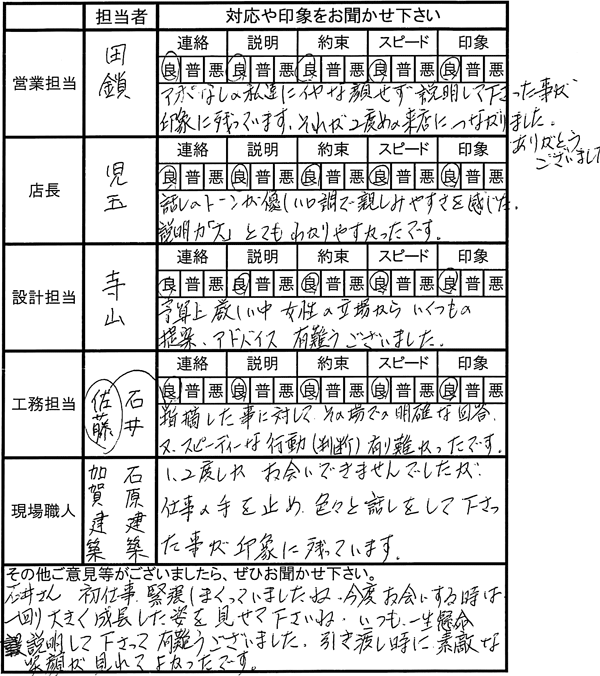 担当者 対応や印象をお聞かせ下さい
営業担当 田鎖
連絡 説明 約束 スピード 印象
良 普 悪 良 普 悪 良 普 悪 良 普 悪 良 普 悪
アポなしの私達にイヤな顔せず説明して下さった事が
印象に残っています。それが2度めの来店につながりました。
ありがとう
ございました
店長 児玉
連絡 説明 約束 スピード 印象
良 普 悪 良 普 悪 良 普 悪 良 普 悪 良 普 悪
話しのトーンが優しい口調で親しみやすさを感じた。
説明力「大」とてもわかりやすかったです。
設計担当 寺山
連絡 説明 約束 スピード 印象
良 普 悪 良 普 悪 良 普 悪 良 普 悪 良 普 悪
予算上厳しい中 女性の立場から いくつもの
提案、アドバイス 有難うございました。
工務担当 石井 佐藤
連絡 説明 約束 スピード 印象
良 普 悪 良 普 悪 良 普 悪 良 普 悪 良 普 悪
指摘した事に対して その場での明確な回答、
又、スピーディーな行動(判断)有り難かったです。
現場職人 石原建築 加賀建築
1、2度しか お会いできませんでしたが、
仕事の手を止め、色々と話しをして下さっ
た事が印象に残っています。
その他ご意見等がございましたら、ぜひお聞かせ下さい。
石井さん 初仕事、緊張しまくっていましたね。今度お会いする時は
一回り大きく成長した姿を見せて下さいね。いつも一生懸命
説明して下さって有難うございました。引き渡し時に素敵な
笑顔が見れてよかったです。